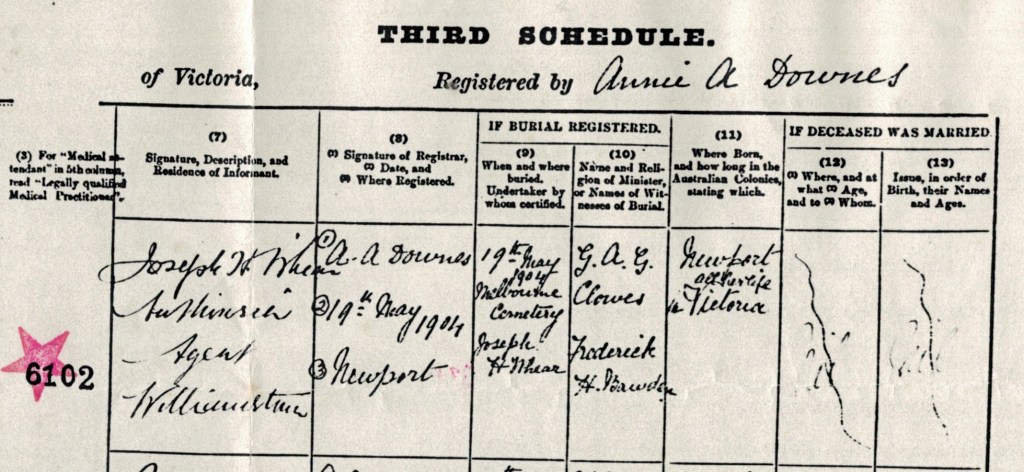 THIRD SCHEDULE.
of Victoria, Registered by Annie A Downes
(3) For "Medical at-
tendant" in 5th column,
read "Legally qualified
Medical Practitioner".
(7)
Signature, Description, and
Residence of Informant.
(8)
(1) Signature of Registrar,
(2) Date, and
(3) Where Registered.
IF BURIAL REGISTERED.
(9)
When and where
buried.
Undertaker by
whom certified.
(10)
Name and Reli-
gion of Minister,
or Names of Wit-
nesses of Burial.
(11)
Where Born,
and how long in the
Australian Colonies,
stating which.
IF DECEASED WAS MARRIED.
(12)
(1) Where, and at
what (2) Age,
and to (3) Whom.
(13)
Issue, in order of
Birth, their Names
and Ages.
6102
Joseph H Whear
Authorised
Agent
Williamstown
(1) A. A Downes
(2) 19th May 1904
(3) Newport
19th May
1904
Melbourne
Cemetery
Joseph
H Whear
G. A. G.
Clowes
Frederick
H. Bawden
Newport
all her life
in Victoria